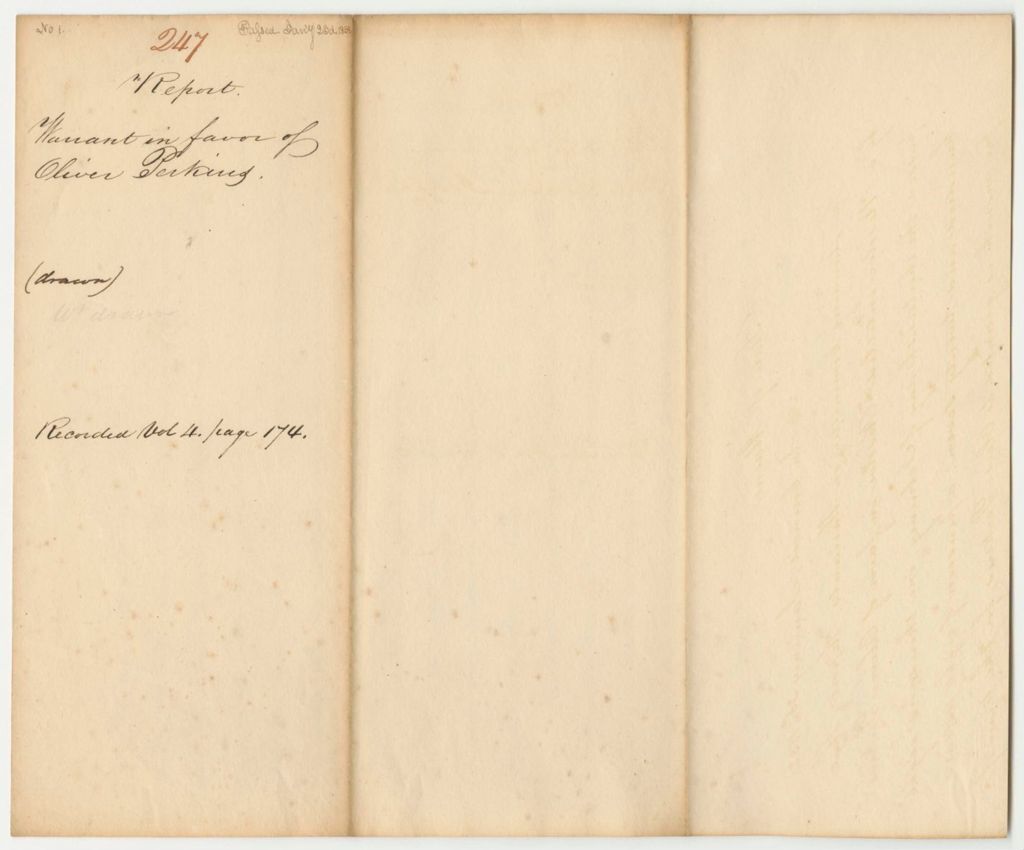 No 1.
Passed Jany 23d
247
Report.
Warrant in favor of
Oliver Perkins.
(drawn)
Wt drawn
Recorded Vol 4. page 174.